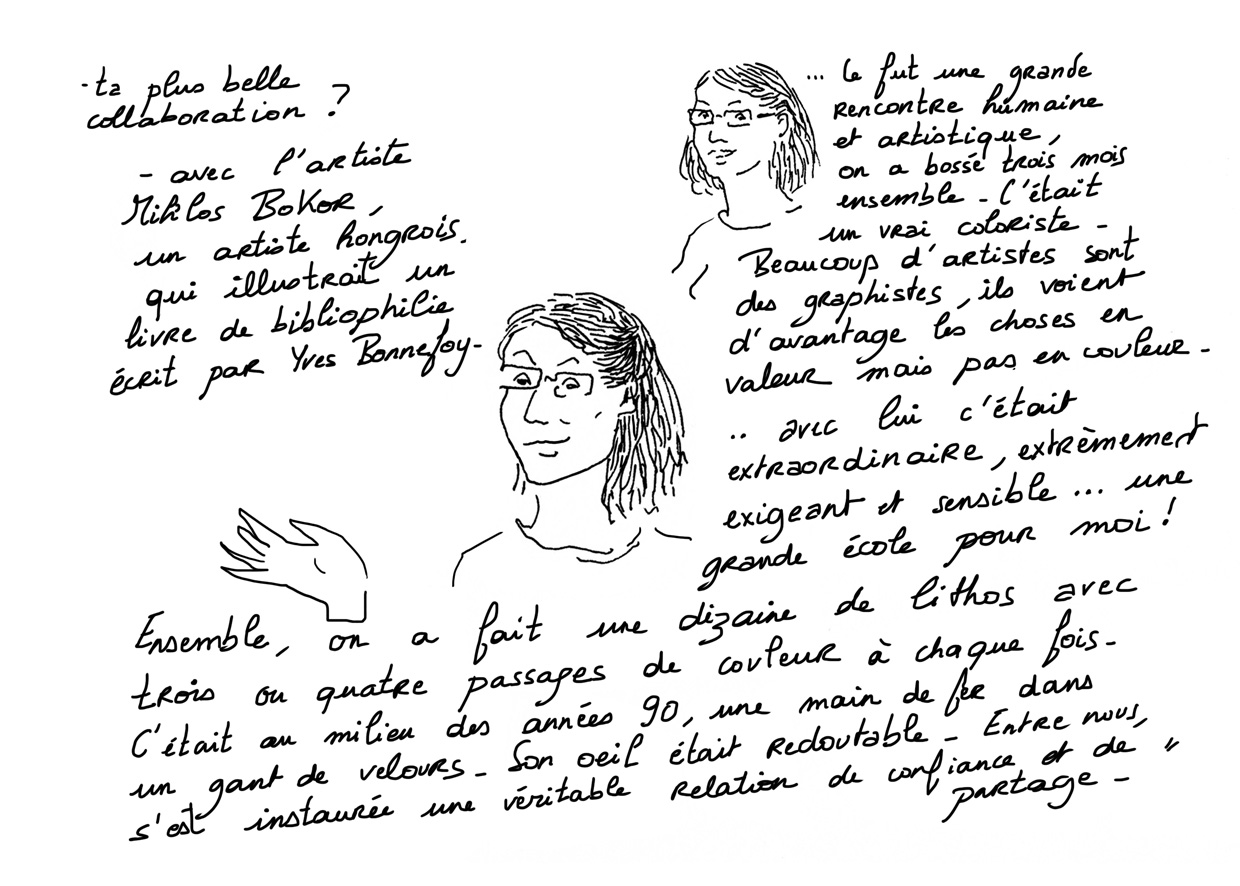 - ta plus belle
collaboration ?
- avec l'artiste
Miklos Bokor,
un artiste hongrois.
qui illustrait un
livre de bibliophilie
écrit par Yves Bonnefoy-
... Ce fut une grande
rencontre humaine
et artistique,
on a bossé trois mois
ensemble - C'était
un vrai coloriste -
Beaucoup d'artistes sont
des graphistes, ils voient
d'avantage les choses en
valeur mais pas en couleur -
.. avec lui c'était
extraordinaire, extrèmement
exigeant et sensible ... une
grande école pour moi !
Ensemble, on a fait une dizaine de lithos avec
trois ou quatre passages de couleur à chaque fois -
C'était au milieu des années 90, une main de fer dans
un gant de velours - Son oeil était redoutable - Entre nous,
s'est instaurée une véritable relation de confiance et de "
partage -